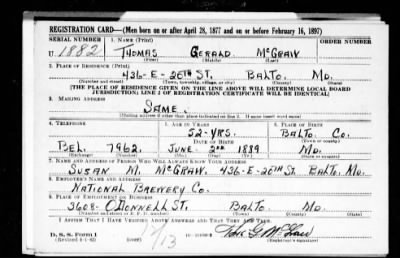 REGISTRATION CARD—(Men born on or after April 28, 1877 and on or before February 16, 1897)
SERIAL NUMBER 1. NAME (Print)
U 1882 THOMAS GERALD MCGRAW
(First) (Middle) (Last)
2. PLACE OF RESIDENCE (Print)
436-E-26TH ST. BALTO. MD.
(Number and street) (Town, township, village, or city) (County) (State)
[THE PLACE OF RESIDENCE GIVEN ON THE LINE ABOVE WILL DETERMINE LOCAL BOARD
JURISDICTION; LINE 2 OF REGISTRATION CERTIFICATE WILL BE IDENTICAL]
3. MAILING ADDRESS
SAME.
[Mailing address if other than place indicated on line 2. If same insert word same]
4. TELEPHONE 5. AGE IN YEARS 6. PLACE OF BIRTH
52-YRS. BALTO. CO.
DATE OF BIRTH (Town or county)
BEL. 7962. JUNE 2ND 1889 MD.
(Exchange) (Number) (Mo.) (Day) (Yr.) (State or country)
7. NAME AND ADDRESS OF PERSON WHO WILL ALWAYS KNOW YOUR ADDRESS
SUSAN M. MCGRAW. 436-E-26TH ST. BALTO. MD.
8. EMPLOYER'S NAME AND ADDRESS
NATIONAL BREWERY CO.
9. PLACE OF EMPLOYMENT OR BUSINESS
3608- O'DONNELL ST. BALTO. MD.
(Number and street or R. F. D. number) (Town) (County) (State)
I AFFIRM THAT I HAVE VERIFIED ABOVE ANSWERS AND THAT THEY ARE TRUE.
D. S. S. Form 1
(Revised 4-1-42) (over)
(Registrant's signature)